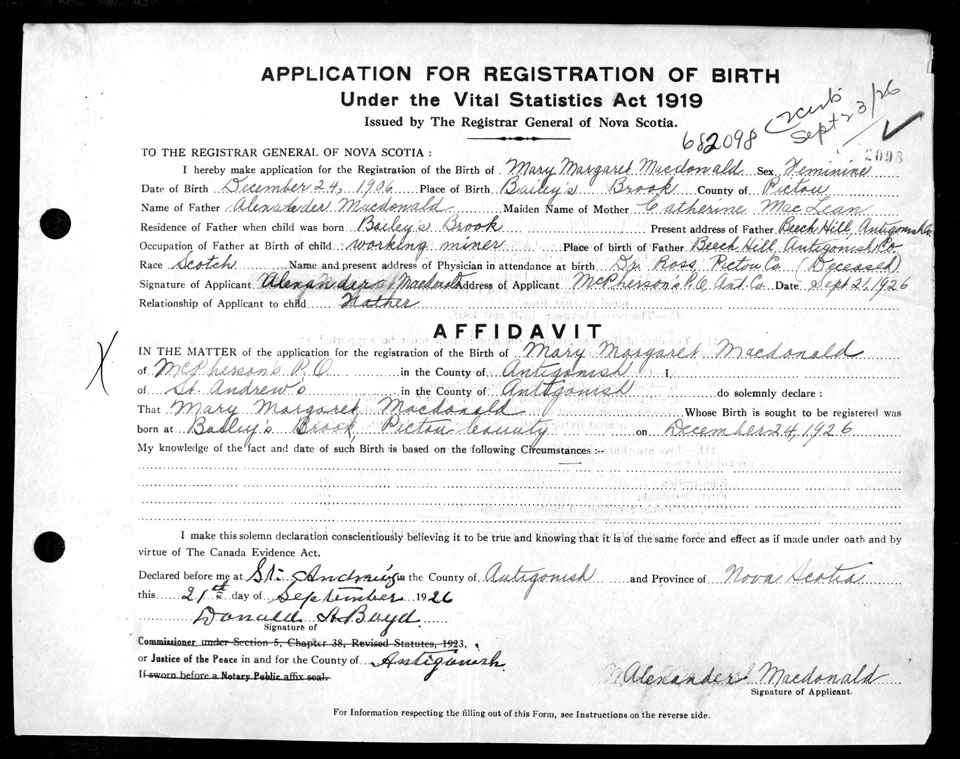 APPLICATION FOR REGISTRATION OF BIRTH
Under the Vital Statistics Act 1919
Issued by The Registrar General of Nova Scotia.
Sept 23/26
682098
2098
TO THE REGISTRAR GENERAL OF NOVA SCOTIA :
I hereby make application for the Registration of the Birth of Mary Margaret Macdonald Sex Feminine
Date of Birth December 24, 1906 Place of Birth Bailey's Brook County of Pictou
Name of Father Alexander Macdonald Maiden Name of Mother Catherine MacLean
Residence of Father when child was born Bailey's Brook Present address of Father Beech Hill, Antigonish Co.
Occupation of Father at Birth of child working miner Place of birth of Father Beech Hill, Antigonish Co.
Race Scotch Name and present address of Physician in attendance at birth Dr. Ross, Pictou Co. (Deceased)
Signature of Applicant Alexander Macdonald Address of Applicant McPherson's P.O, Ant. Co. Date Sept 21, 1926
Relationship of Applicant to child Father
AFFIDAVIT
X
IN THE MATTER of the application for the registration of the Birth of Mary Margaret Macdonald
of McPherson's P.O in the County of Antigonish I,
of St. Andrew's in the County of Antigonish do solemnly declare :
That Mary Margaret Macdonald Whose Birth is sought to be registered was
born at Bailey's Brook, Pictou County on December 24, 1926
My knowledge of the fact and date of such Birth is based on the following Circumstances :-
I make this solemn declaration conscientiously believing it to be true and knowing that it is of the same force and effect as if made under oath and by
virtue of The Canada Evidence Act.
Declared before me at St. Andrew's in the County of Antigonish and Province of Nova Scotia
this 21st day of September 1926
Donald H Boyd
Signature of
Commissioner under Section 5, Chapter 38, Revised Statutes, 1923,
or Justice of the Peace in and for the County of Antigonish
If sworn before a Notary Public affix seal.
Alexander Macdonald
Signature of Applicant.
For Information respecting the filling out of this Form, see Instructions on the reverse side.